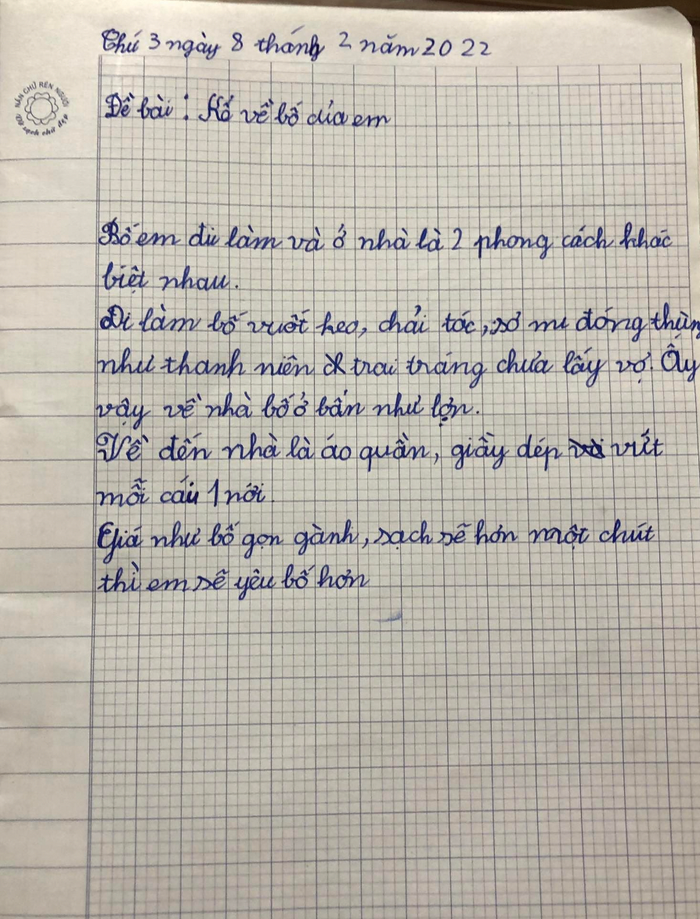 Thứ 3 ngày 8 tháng 2 năm 2022
NẮN CHỮ RÈN NGƯỜI
Vở sạch chữ đẹp
Đề bài : Kể về bố của em
Bố em đi làm và ở nhà là 2 phong cách khác
biệt nhau.
Đi làm bố vuốt keo, chải tóc, sơ mi đóng thùng
như thanh niên trai tráng chưa lấy vợ. Ấy
vậy về nhà bố ở bẩn như lợn.
Về đến nhà là áo quần, giầy dép vứt
mỗi cái 1 nơi
Giá như bố gọn gành, sạch sẽ hơn một chút
thì em sẽ yêu bố hơn